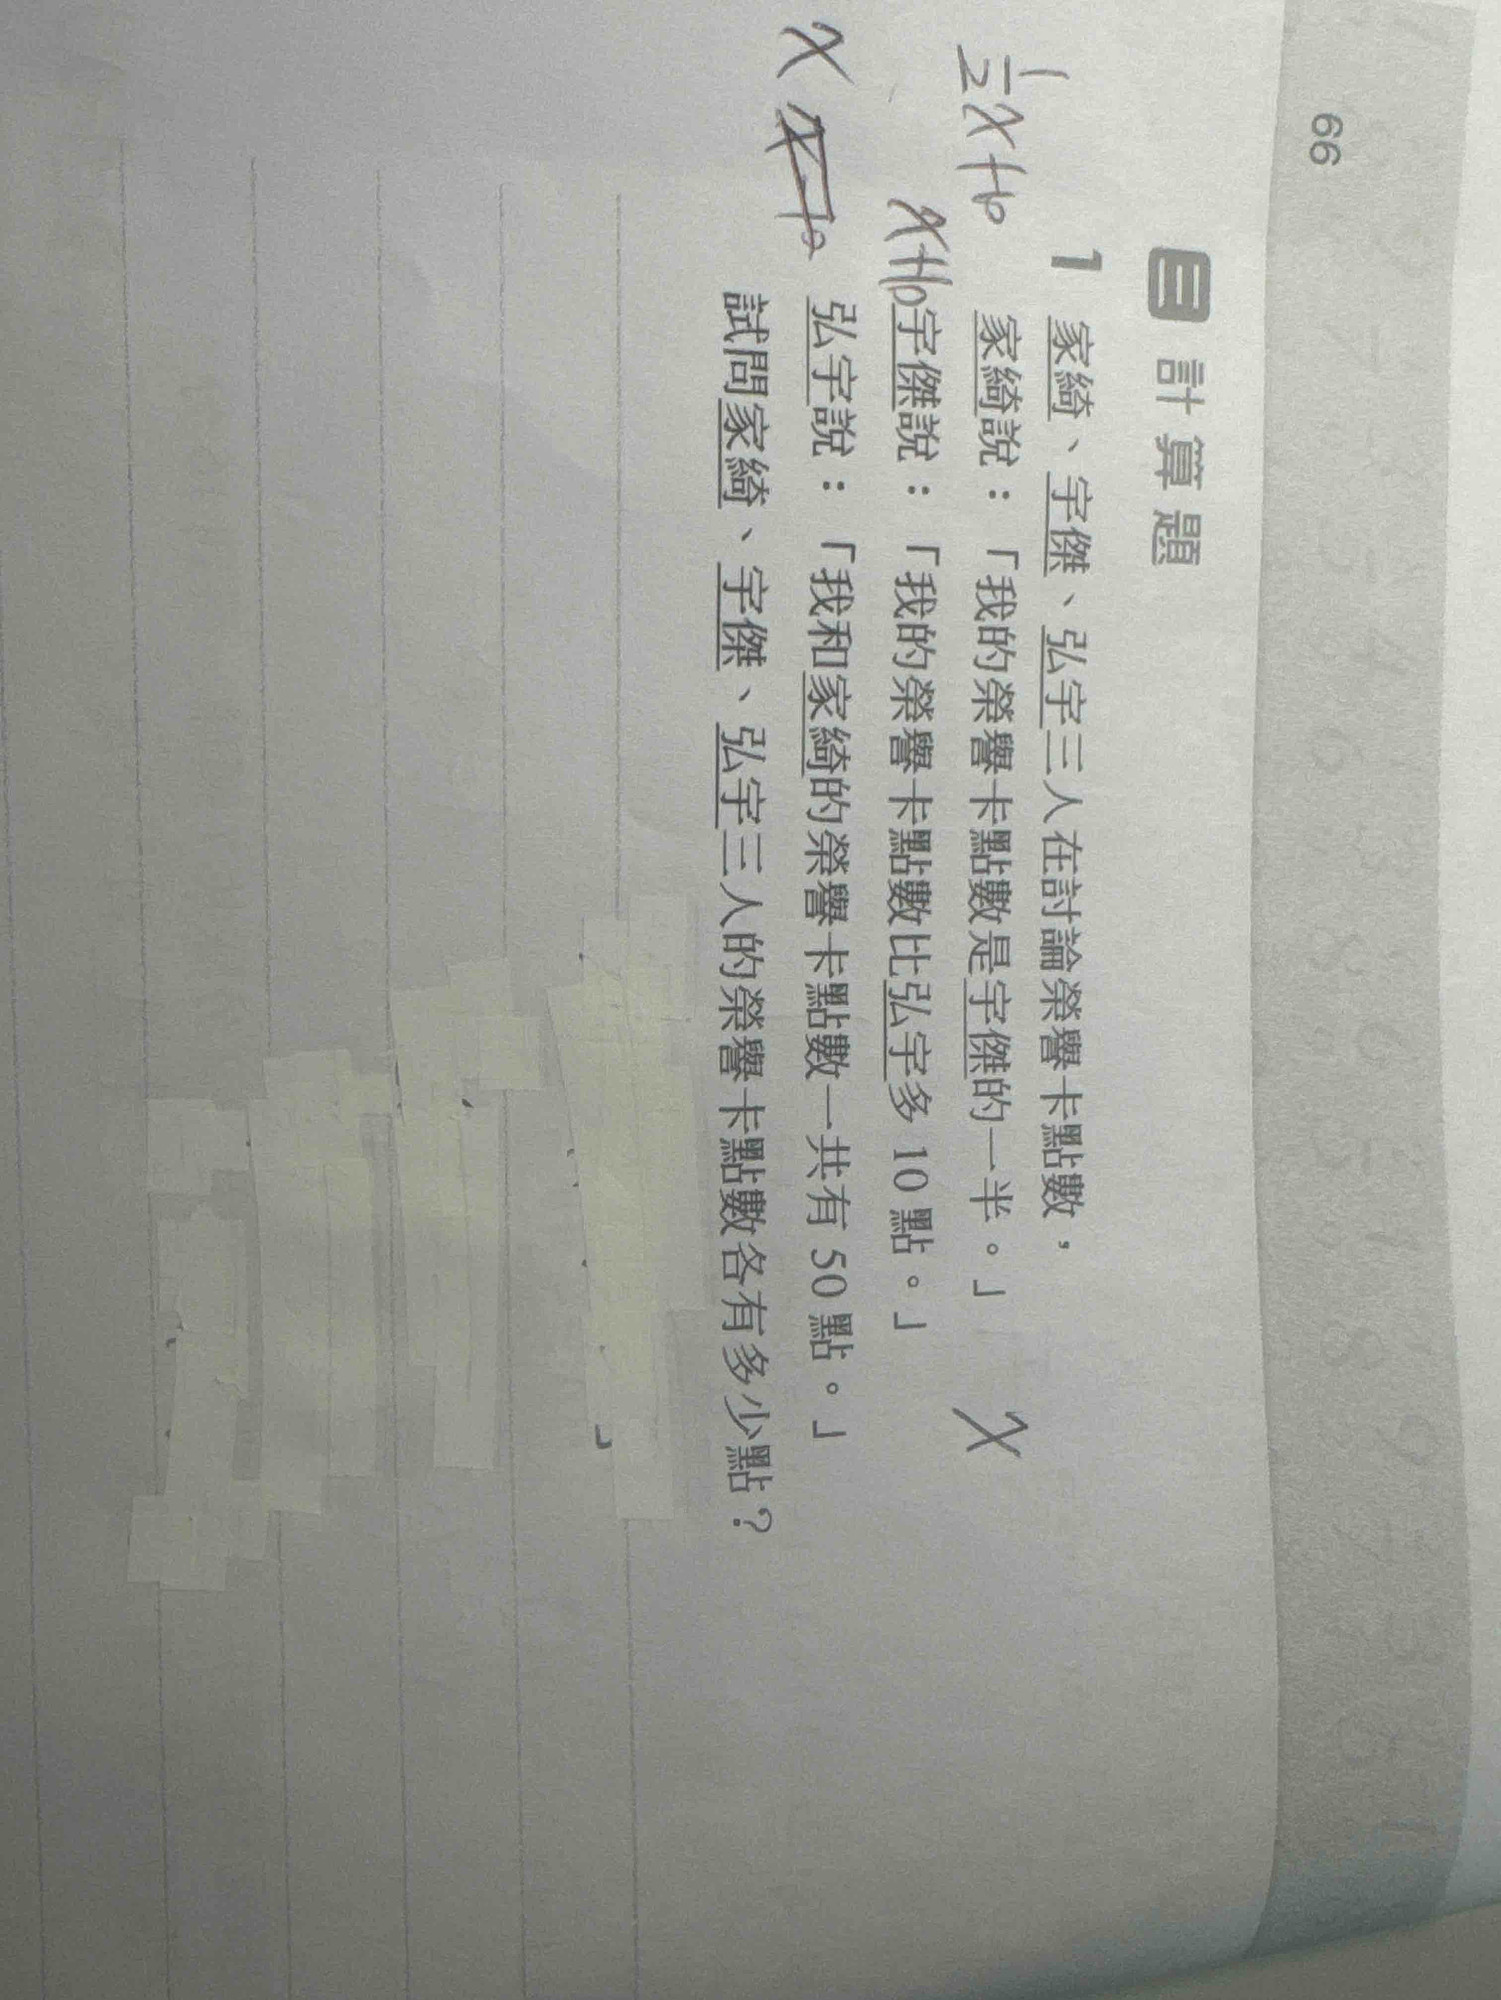 66
三 計算題
1 家綺、宇傑、弘宇三人在討論榮譽卡點數，
½x+10 家綺說：「我的榮譽卡點數是宇傑的一半。」 x
x+10 宇傑說：「我的榮譽卡點數比弘宇多 10 點。」
x 弘宇說：「我和家綺的榮譽卡點數一共有 50 點。」
試問家綺、宇傑、弘宇三人的榮譽卡點數各有多少點？